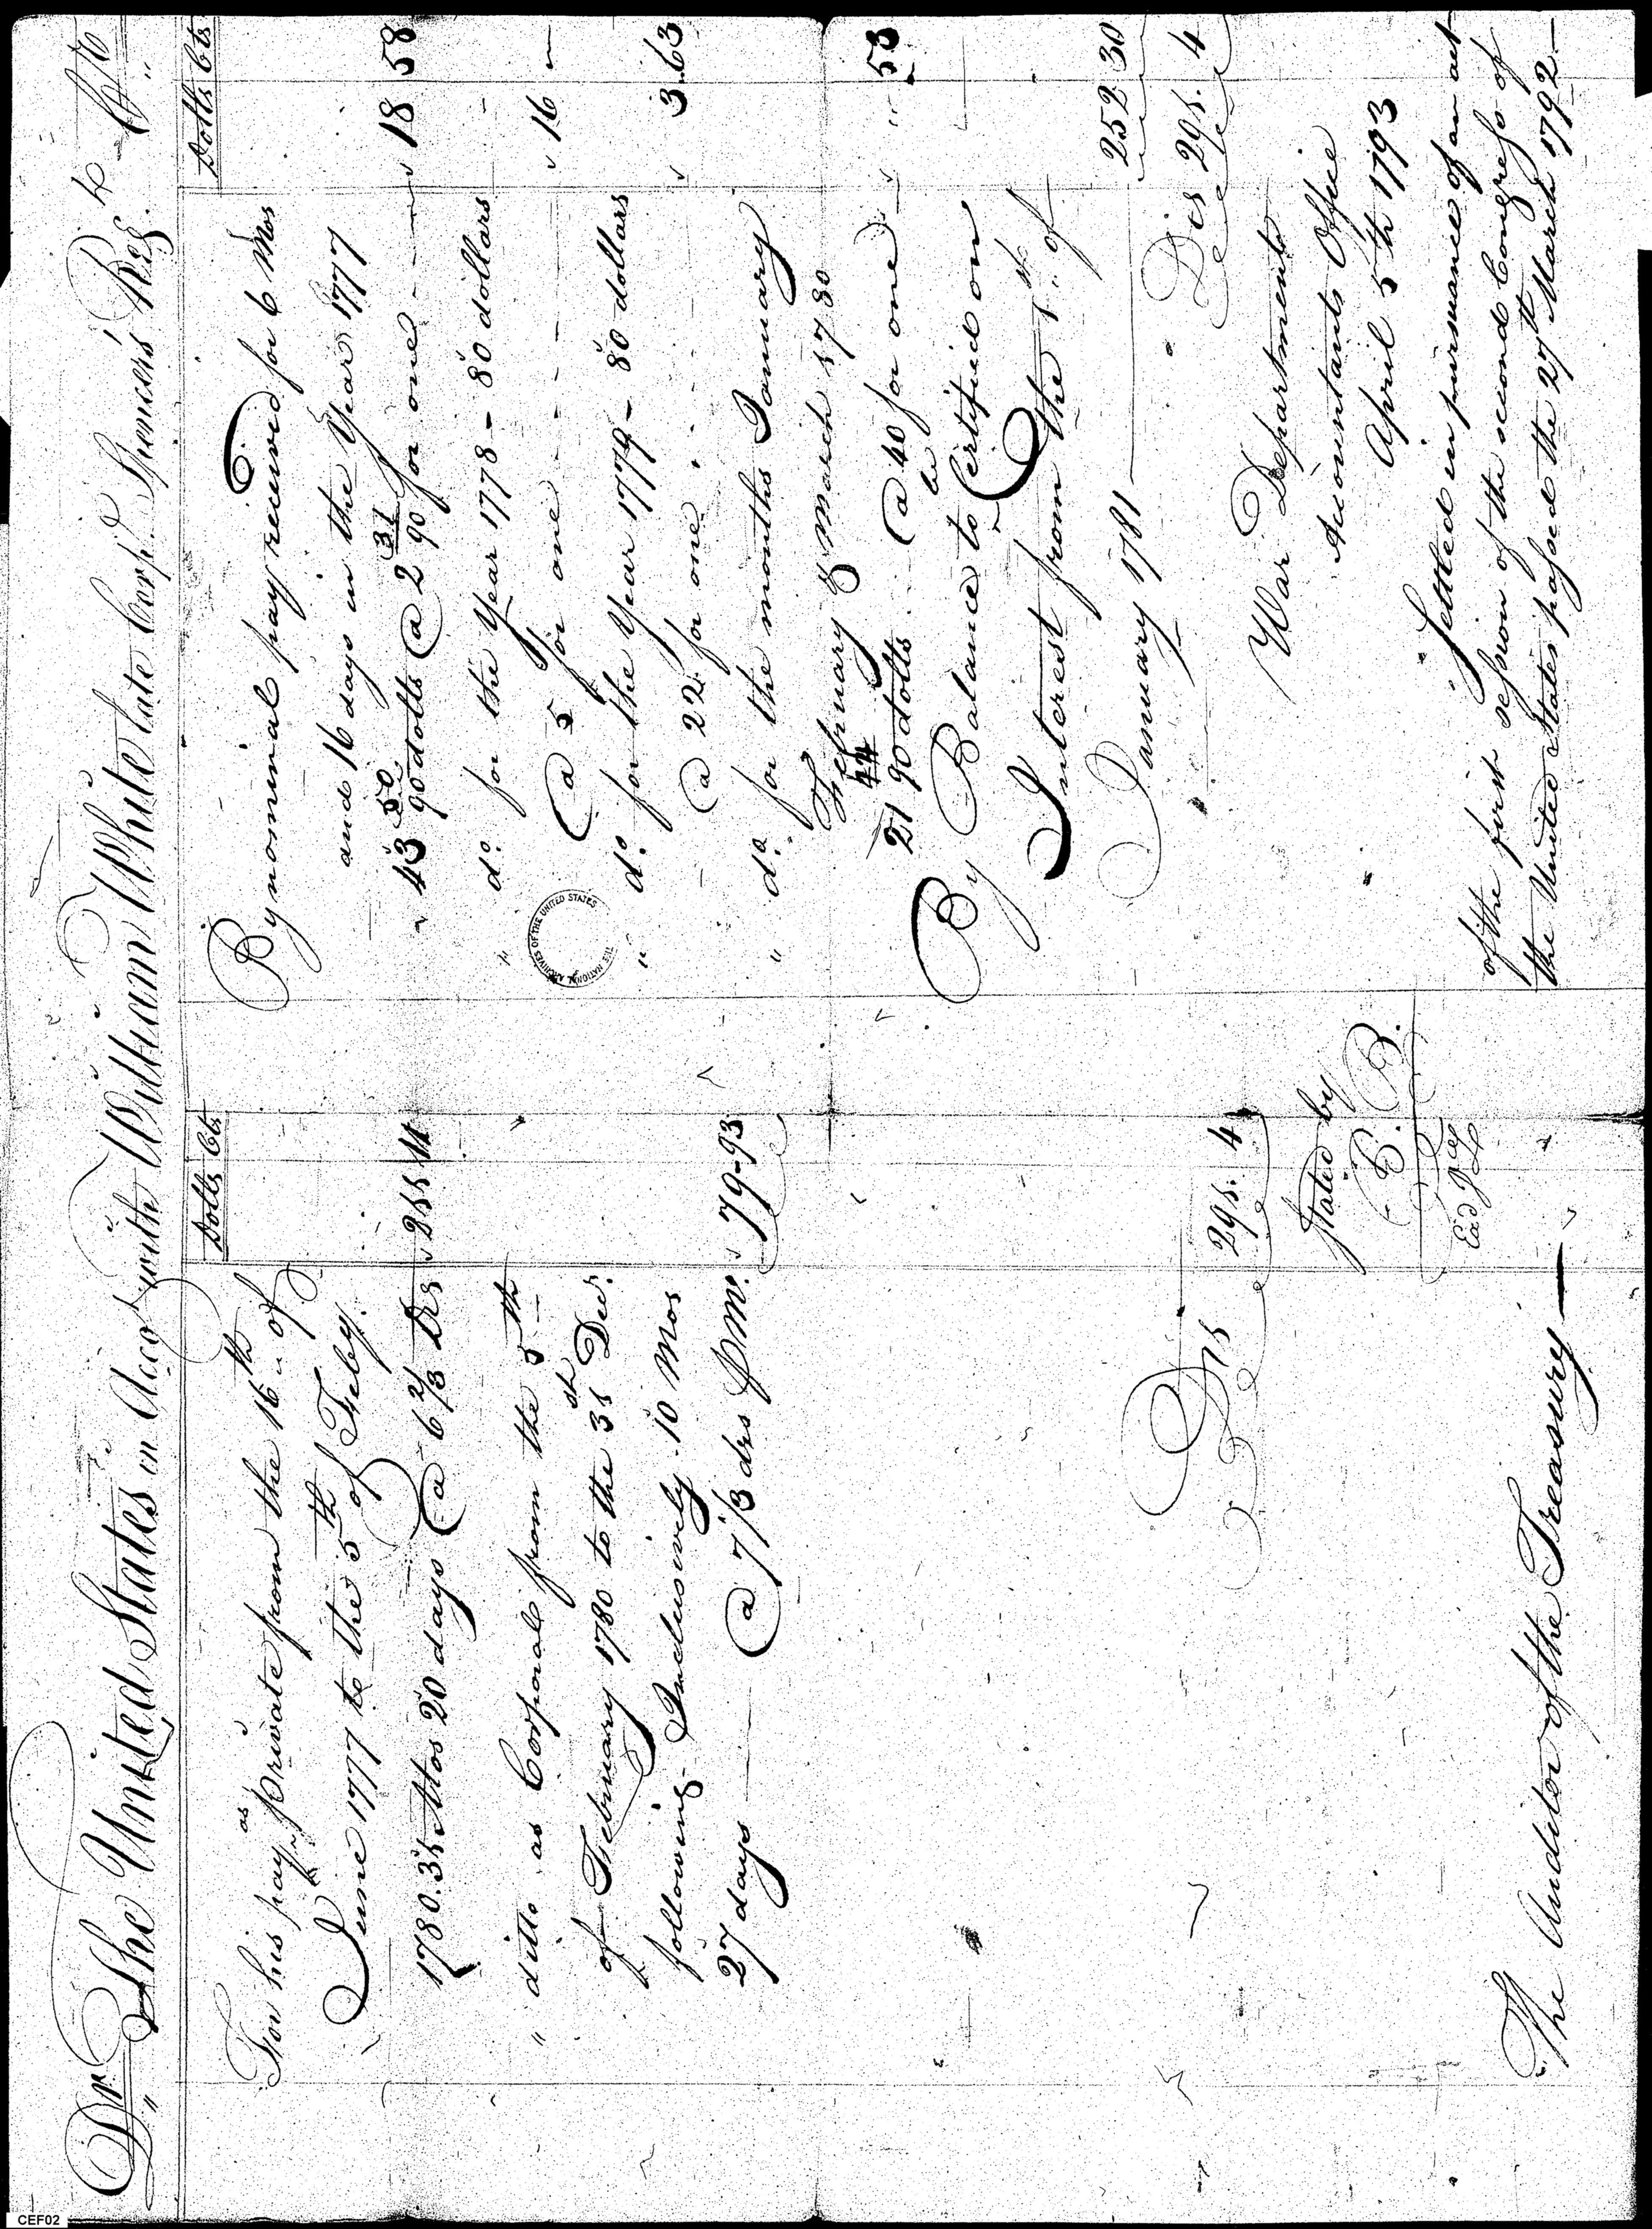 Dr The United States in Acco.t with William White late Corpl. Spencers Reg.t Cr
Dolls Cts
For his pay as private from the 16th of
June 1777 to the 5th of Feby.
1780. 31 Mos 20 days @ 6 2/3 Drs 211 11
" ditto as Corporal from the 5th
of February 1780 to the 31st Decr.
following Inclusively. 10 Mos
27 days @ 7 1/3 drs P Mo. 79-93
Drs 291. 4
Stated by
E. B.
The Auditor of the Treasury
Dolls Cts
By nominal pay received for 6 Mos
and 16 days in the Year 1777
43 50/90 dolls @ 2 31/90 for one 18 58
" do. for the Year 1778 - 80 dollars
@ 5 for one 16 "
" do. for the Year 1779 - 80 dollars
@ 22 for one 3.63
" do. for the months January
February & March 1780
21 44/90 dolls @ 40 for one " 53
By Balance to be Certified on
Interest from the 1st of
January 1781 252 30
Drs 291. 4
War Department
Accountants Office
April 5th 1793
Settled in pursuance of an act
of the first session of the second Congress of
the United States passed the 27th March 1792
THE NATIONAL ARCHIVES OF THE UNITED STATES
CEF02